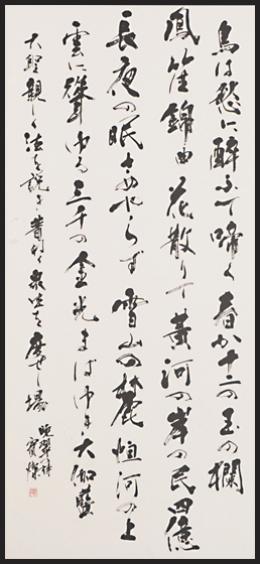 鳥は愁に酔ふて啼く春か十二の玉の欄
鳳笙錦曲花散りて黄河の岸の民四億
長夜の眠さめやらず雪山の麓恒河の上
雲に聳ゆる三千の金光まばゆき大伽藍
大聖親しく法を説き普く衆生を度せし場